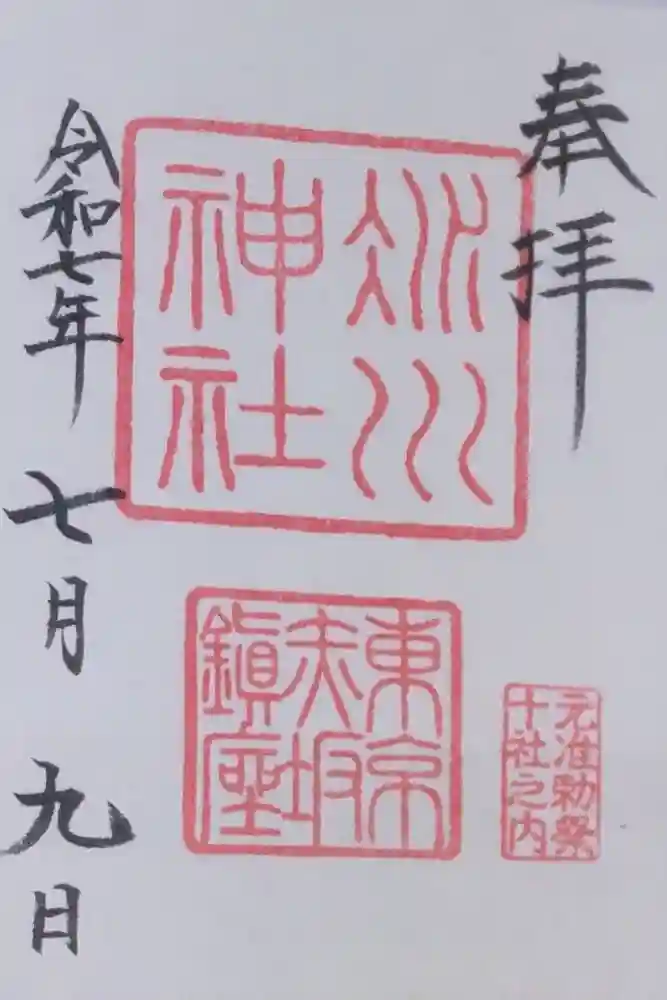 奉拝
氷川
神社
東京
赤坂
鎮座
元准勅祭
十社之内
令和七年 七月 九日